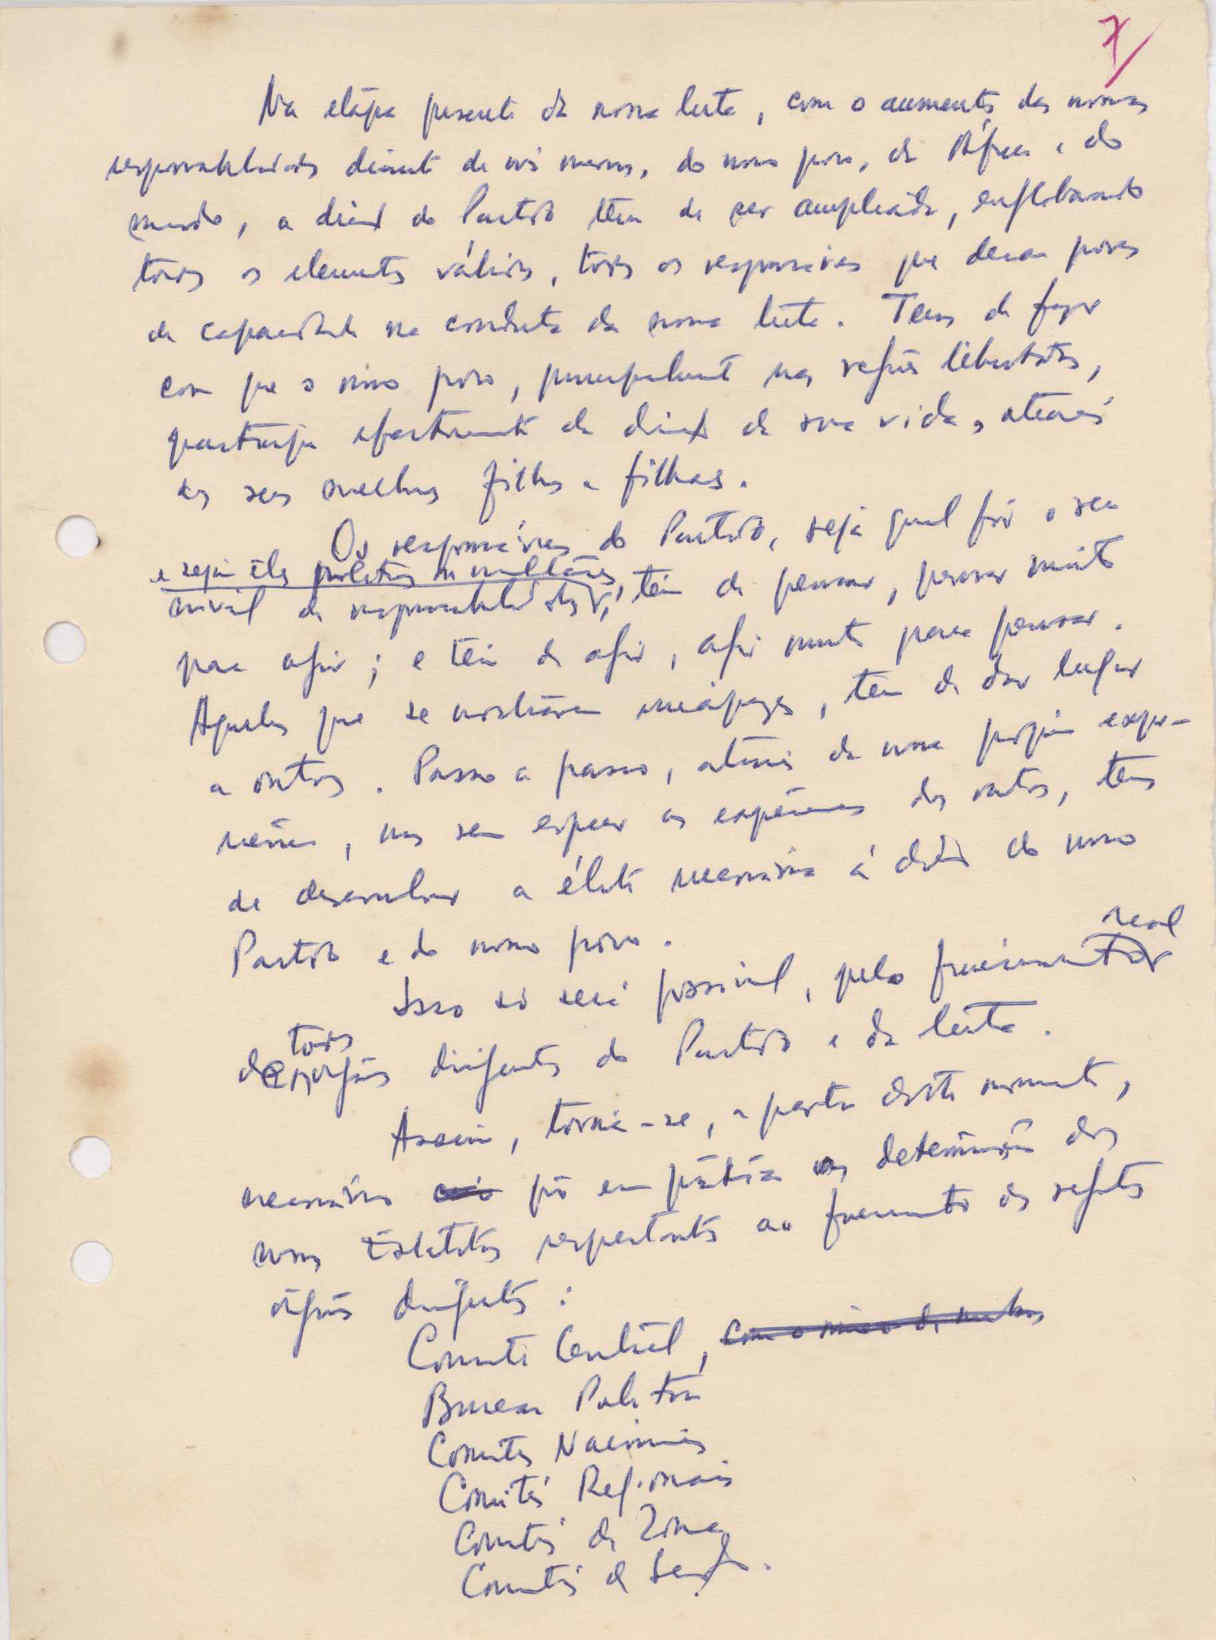 7
Na etapa presente da nossa luta, com o aumento das nossas
responsabilidades diante de nós mesmos, do nosso povo, da África e do
mundo, a direcção do Partido tem de ser ampliada, englobando
todos os elementos válidos, todos os responsáveis que deram provas
de capacidade na conduta da nossa luta. Temos de fazer
com que o nosso povo, principalmente nas regiões libertadas,
participe efectivamente da direcção da sua vida, através
dos seus melhores filhos e filhas.
Os responsáveis do Partido, seja qual for o seu
e sejam êles politicos ou militares,
nível de responsabilidades, têm de pensar, pensar muito
para agir; e têm de agir, agir muito para pensar.
Aqueles que se mostrarem incapazes, têm de dar lugar
a outros. Passo a passo, através da nossa própria expe-
riência, mas sem esquecer as experiências dos outros, temos
de desenvolver a élite necessária à direcção do nosso
Partido e do nosso povo.
real
Isso só será possível, pelo funcionamento
todos
de os orgãos dirigentes do Partido e da luta.
Assim, torna-se, a partir deste momento,
necessário pôr em prática as determinações dos
nossos Estatutos respeitantes ao funcionamento dos seguintes
orgãos dirigentes:
Comité Central, com o número de membros
Bureau Politico
Comités Nacionais
Comités Regionais
Comités de Zona
Comités de Secção.